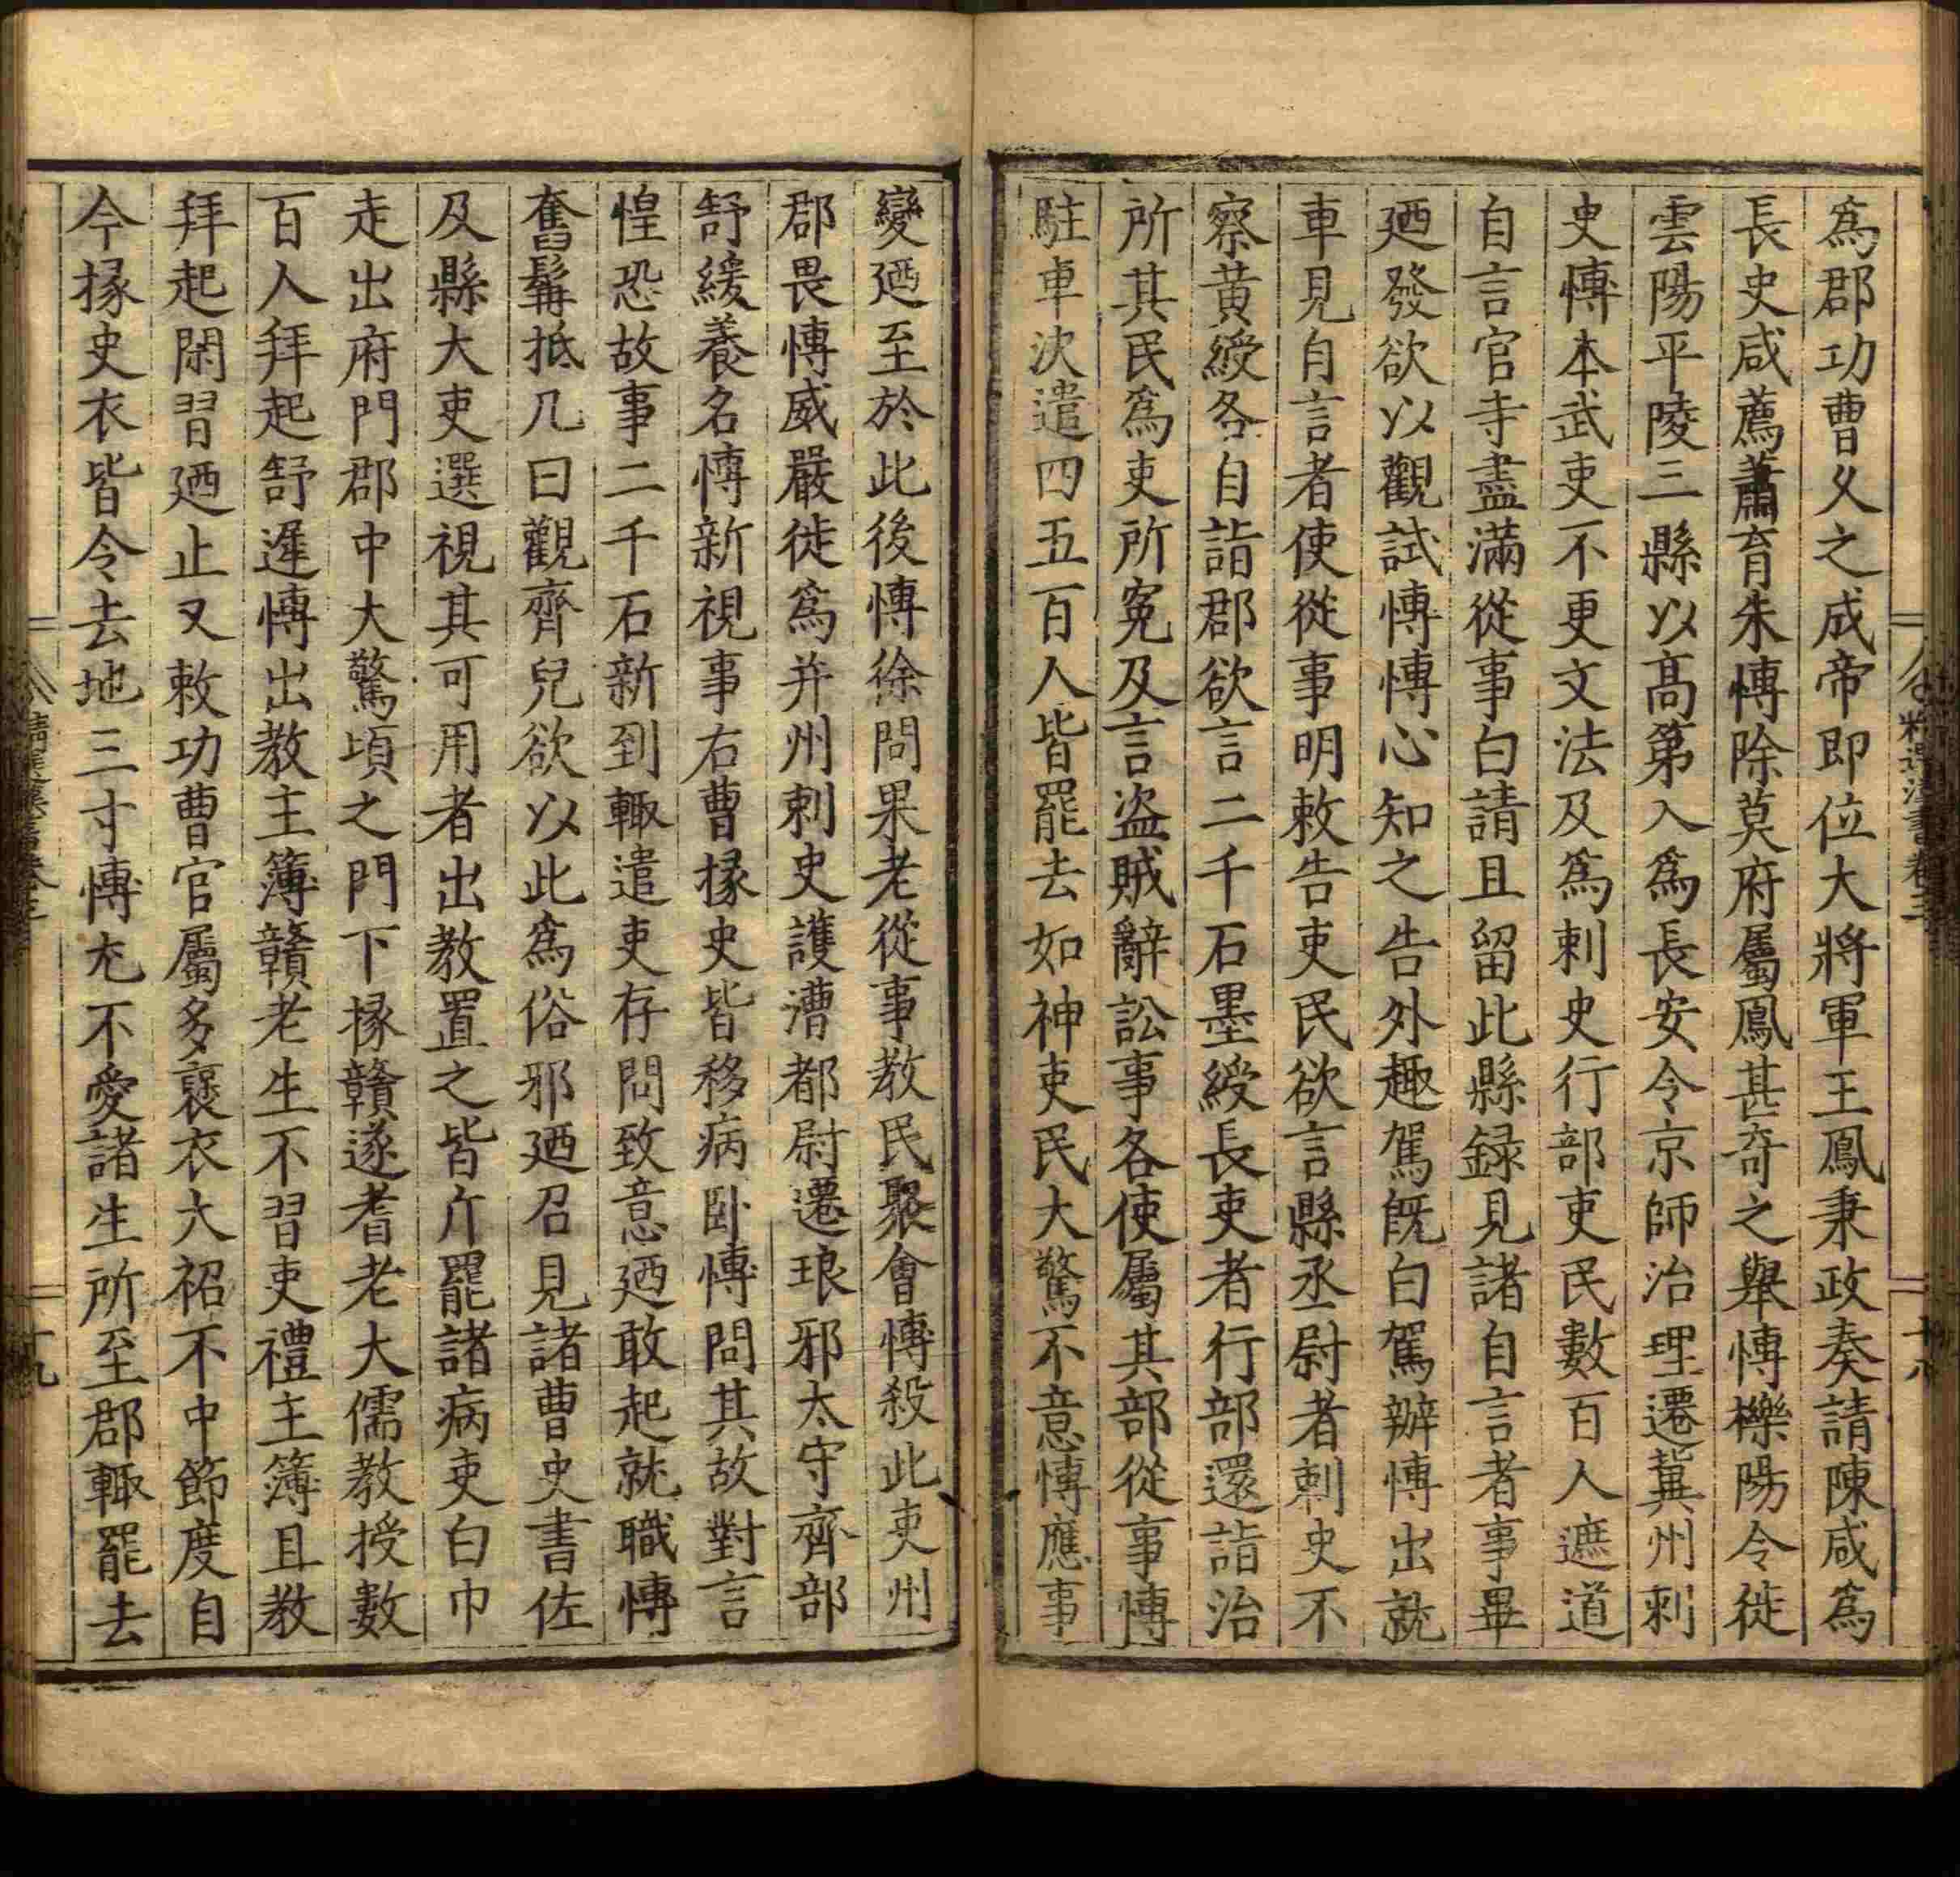 爲郡功曹乆之成帝即位大將軍王鳳秉政奏請陳咸爲
長史咸薦蕭育朱愽除莫府屬鳳甚奇之舉愽櫟陽令徙
雲陽平陵三縣以髙第入爲長安令京師治理遷冀州刺
史愽本武吏不更文法及爲刺史行部吏民數百人遮道
自言官寺盡滿從事白請且留此縣録見諸自言者事畢
廼發欲以觀試愽愽心知之告外趣駕旣白駕辦愽出就
車見自言者使從事明敕告吏民欲言縣丞尉者刺史不
察黄綬各自詣郡欲言二千石墨綬長吏者行部還詣治
所其民爲吏所冤及言盜賊辭訟事各使屬其部從事愽
駐車決遣四五百人皆罷去如神吏民大驚不意愽應事
變廼至於此後愽徐問果老從事教民聚會愽殺此吏州
郡畏愽威嚴徙爲并州刺史護漕都尉遷琅邪太守齊部
舒緩養名愽新視事右曹掾史皆移病卧愽問其故對言
惶恐故事二千石新到輙遣吏存問致意廼敢起就職愽
奮髯抵几曰觀齊兒欲以此爲俗邪廼召見諸曹史書佐
及縣大吏選視其可用者出教置之皆斥罷諸病吏白巾
走出府門郡中大驚頃之門下掾贛遂耆老大儒教授數
百人拜起舒遲愽出教主簿贛老生不習吏禮主簿且教
拜起閑習廼止又敕功曹官屬多襃衣大袑不中節度自
今掾史衣皆令去地三寸愽尤不愛諸生所至郡輙罷去
精選漢書卷三
十八
十九